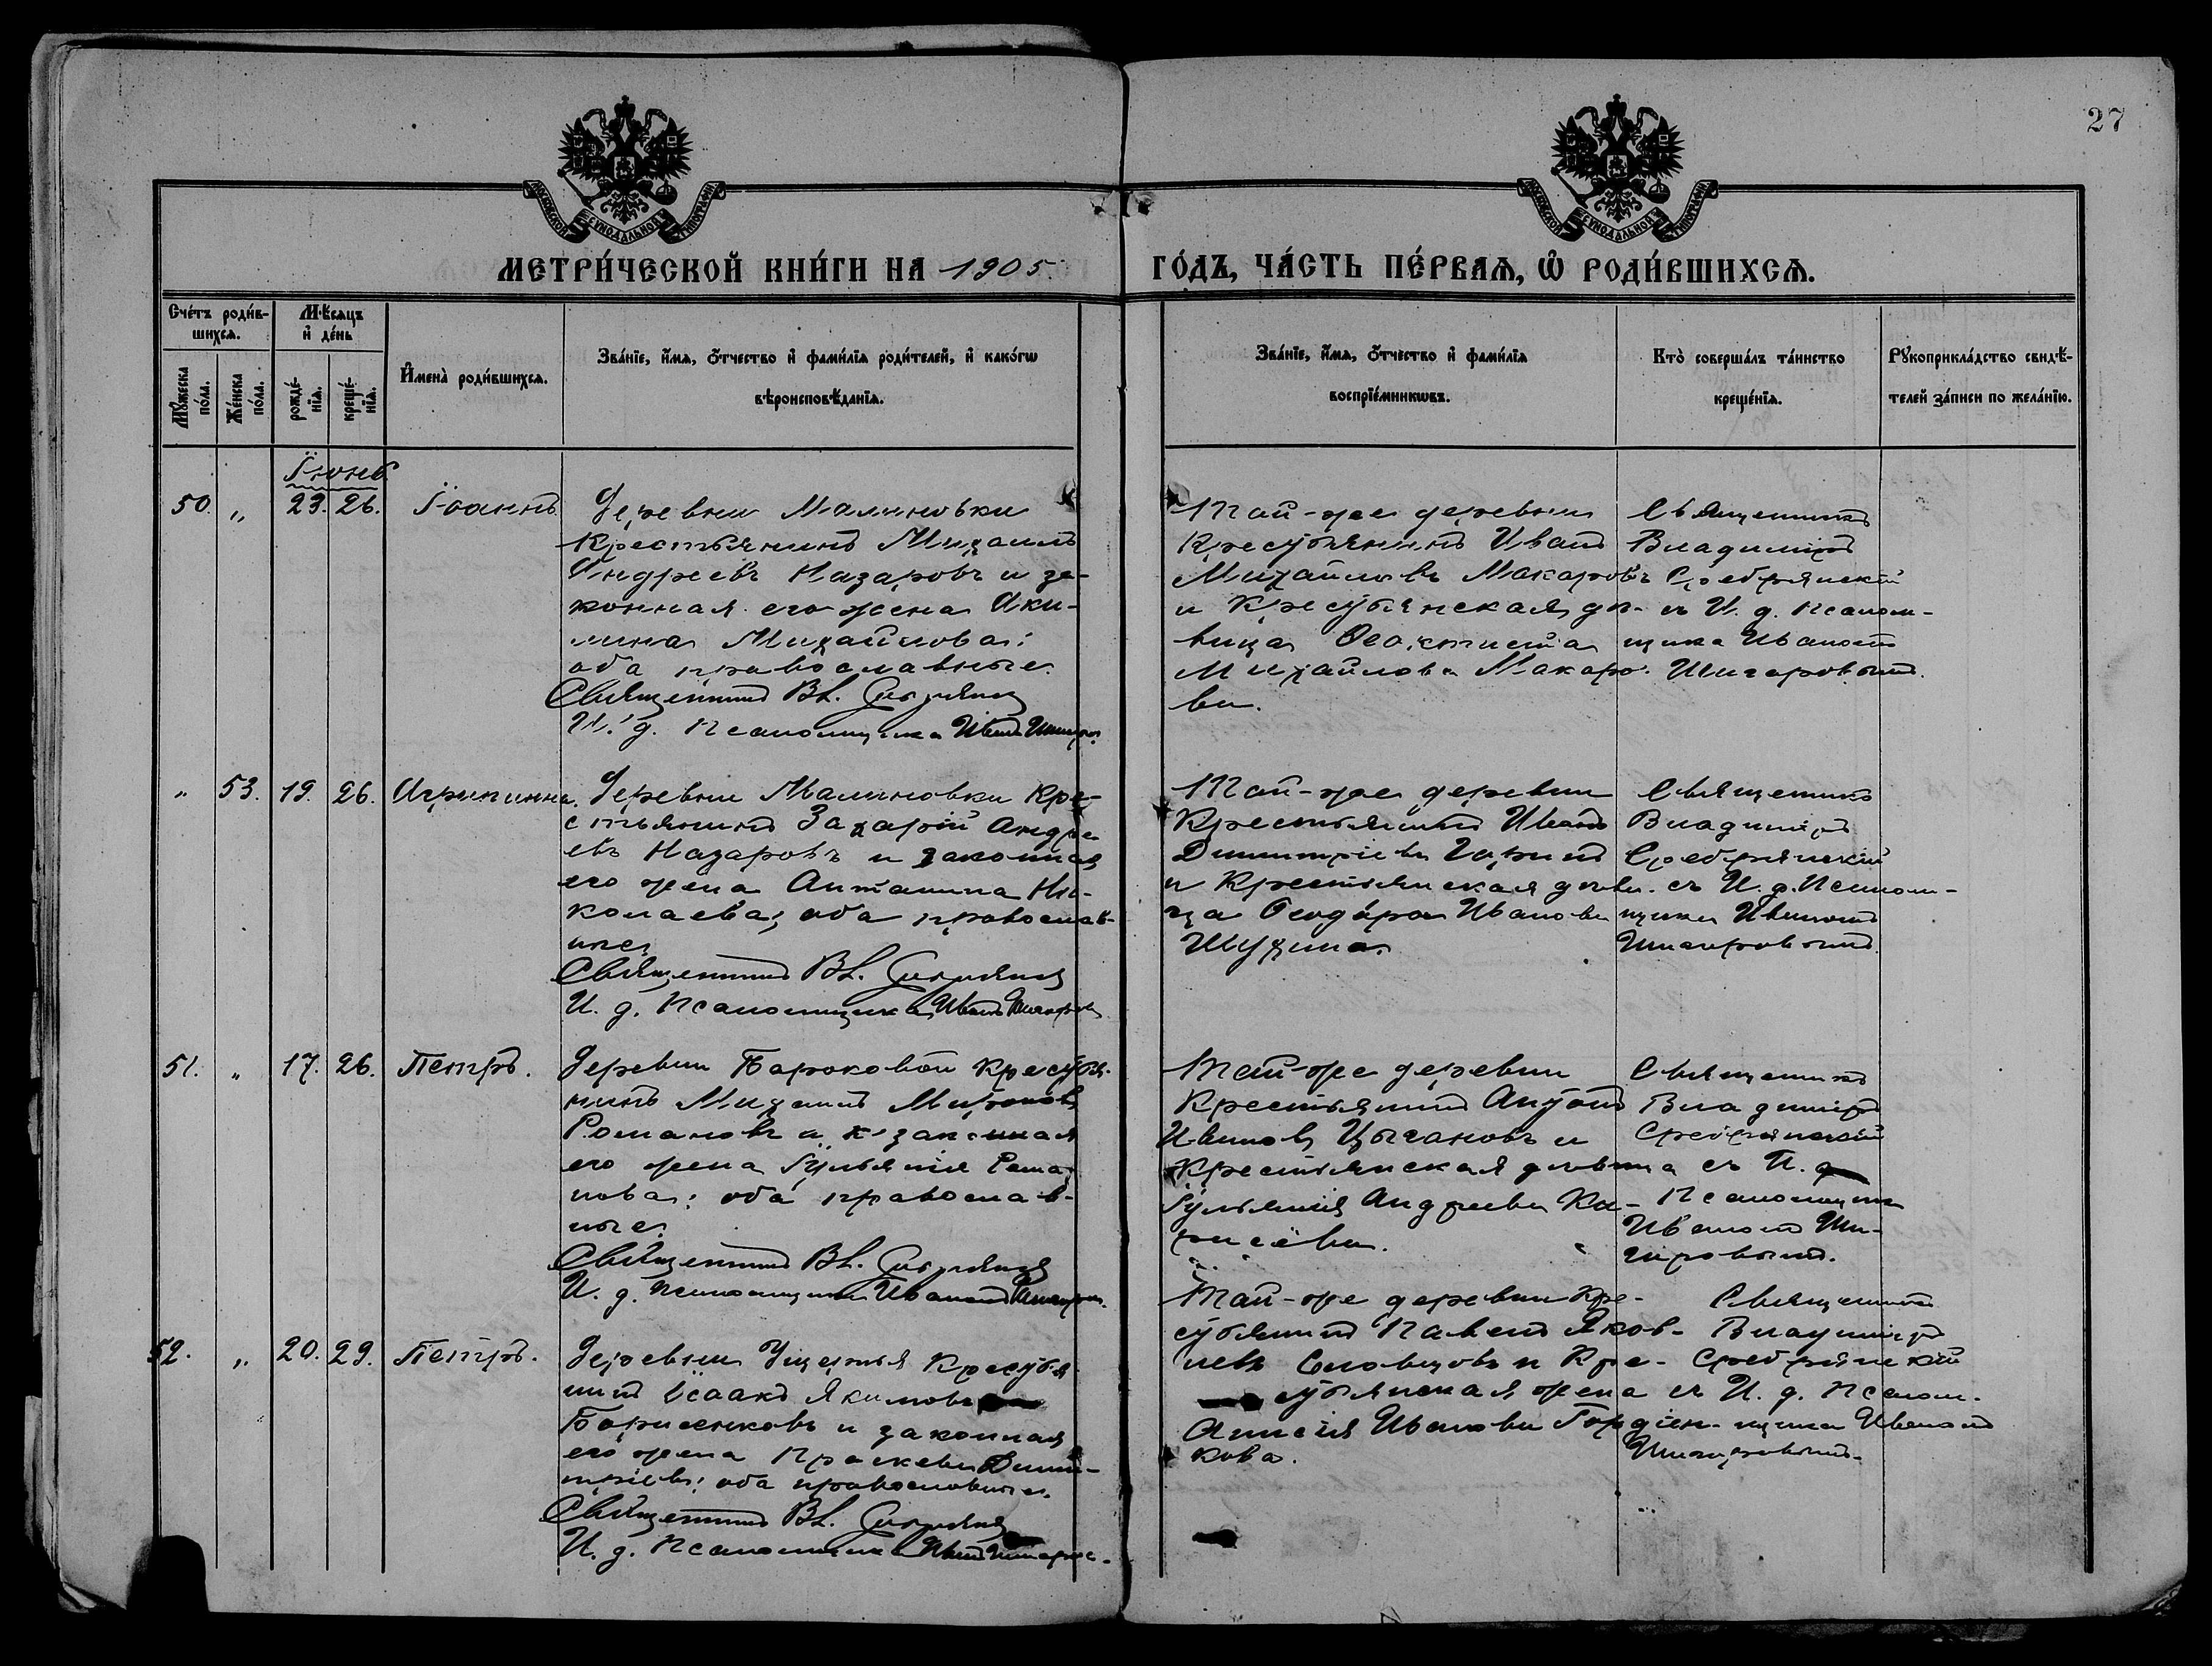 27
МОСКОВСКОЙ СУНОДАЛЬНОЙ ТИПОГРАФІИ
МОСКОВСКОЙ СУНОДАЛЬНОЙ ТИПОГРАФІИ
МЕТРИ́ЧЕСКОЙ КНИ́ГИ НА 1905.
ГО́ДЪ, ЧА́СТЬ ПЕ́РВАѦ, Ѡ РОДИ́ВШИХСѦ.
Счéтъ роди́в-
шихсѧ.
Мꙋ́жеска по́ла.
Же́нска по́ла.
Мѣ́сѧцъ
и҆ де́нь
рожде́-
нїѧ.
креще́-
нїѧ.
И҆мена̀ роди́вшихсѧ.
Зва́нїе, и҆́мѧ, ѻ҆́тчество и҆ фами́лїѧ роди́телей, и҆ како́гѡ
вѣроисповѣ́данїѧ.
Зва́нїе, и҆́мѧ, ѻ҆́тчество и҆ фами́лїѧ
воспрїе́мникѡвъ.
Кто̀ соверша́лъ та́инство
креще́нїѧ.
Рꙋкоприкла́дство свидѣ́-
телей за́писи по жела́нїю.
Іюнь
50. „ 23. 26. Іоаннъ.
Деревни Малиновки
крестьянинъ Михаилъ
Андреевъ Назаровъ и за-
конная его жена Аки-
лина Михайлова:
оба православные.
Священникъ Вл.
И. д. Псаломщика Иванъ
Той-же деревни
крестьянинъ Иванъ
Михайловъ Макаровъ
и крестьянская дѣ-
вица Ѳеоктиста
Михайлова Макаро-
ва.
Священникъ
Владиміръ
Сребрянскій
съ И. д. псалом-
щика Иваномъ
„ 53. 19. 26. Агрипинна.
Деревни Малиновки кре-
стьянинъ Захарій Андре-
евъ Назаровъ и законная
его жена Антанина Ни-
колаева; оба православ-
ные.
Священникъ Вл.
И. д. Псаломщика Иванъ
Той-же деревни
крестьянинъ Иванъ
Димитріевъ
и крестьянская дѣви-
ца Ѳеодора Иванова
Священникъ
Владиміръ
Сребрянскій
съ И. д. Псалом-
щика Иваномъ
51. „ 17. 26. Петръ.
Деревни Бороковой крестья-
нинъ Михаилъ
Романовъ и законная
его жена Іульянія Рома-
нова: оба православ-
ные.
Священникъ Вл.
И. д. Псаломщика Иванъ
Той-же деревни
крестьянинъ Антонъ
Ивановъ Цыгановъ и
крестьянская дѣвица
Іульянія Андреева Ки-
рсѣева.
Священникъ
Владиміръ
Сребрянскій
съ И. д.
Псаломщика
Иваномъ
52. „ 20. 29. Петръ.
Деревни Ущелья крестья-
нинъ Ісаакъ Якимовъ
Борисенковъ и законная
его жена Праскева Дими-
тріева: оба православные.
Священникъ Вл.
И. д. Псаломщика Иванъ
Той-же деревни кре-
стьянинъ Павелъ Яков-
левъ Словцовъ и кре-
стьянская жена
Анисія Иванова Гордіен-
кова.
Священникъ
Владиміръ
Сребрянскій
съ И. д. Псалом-
щика Иваномъ